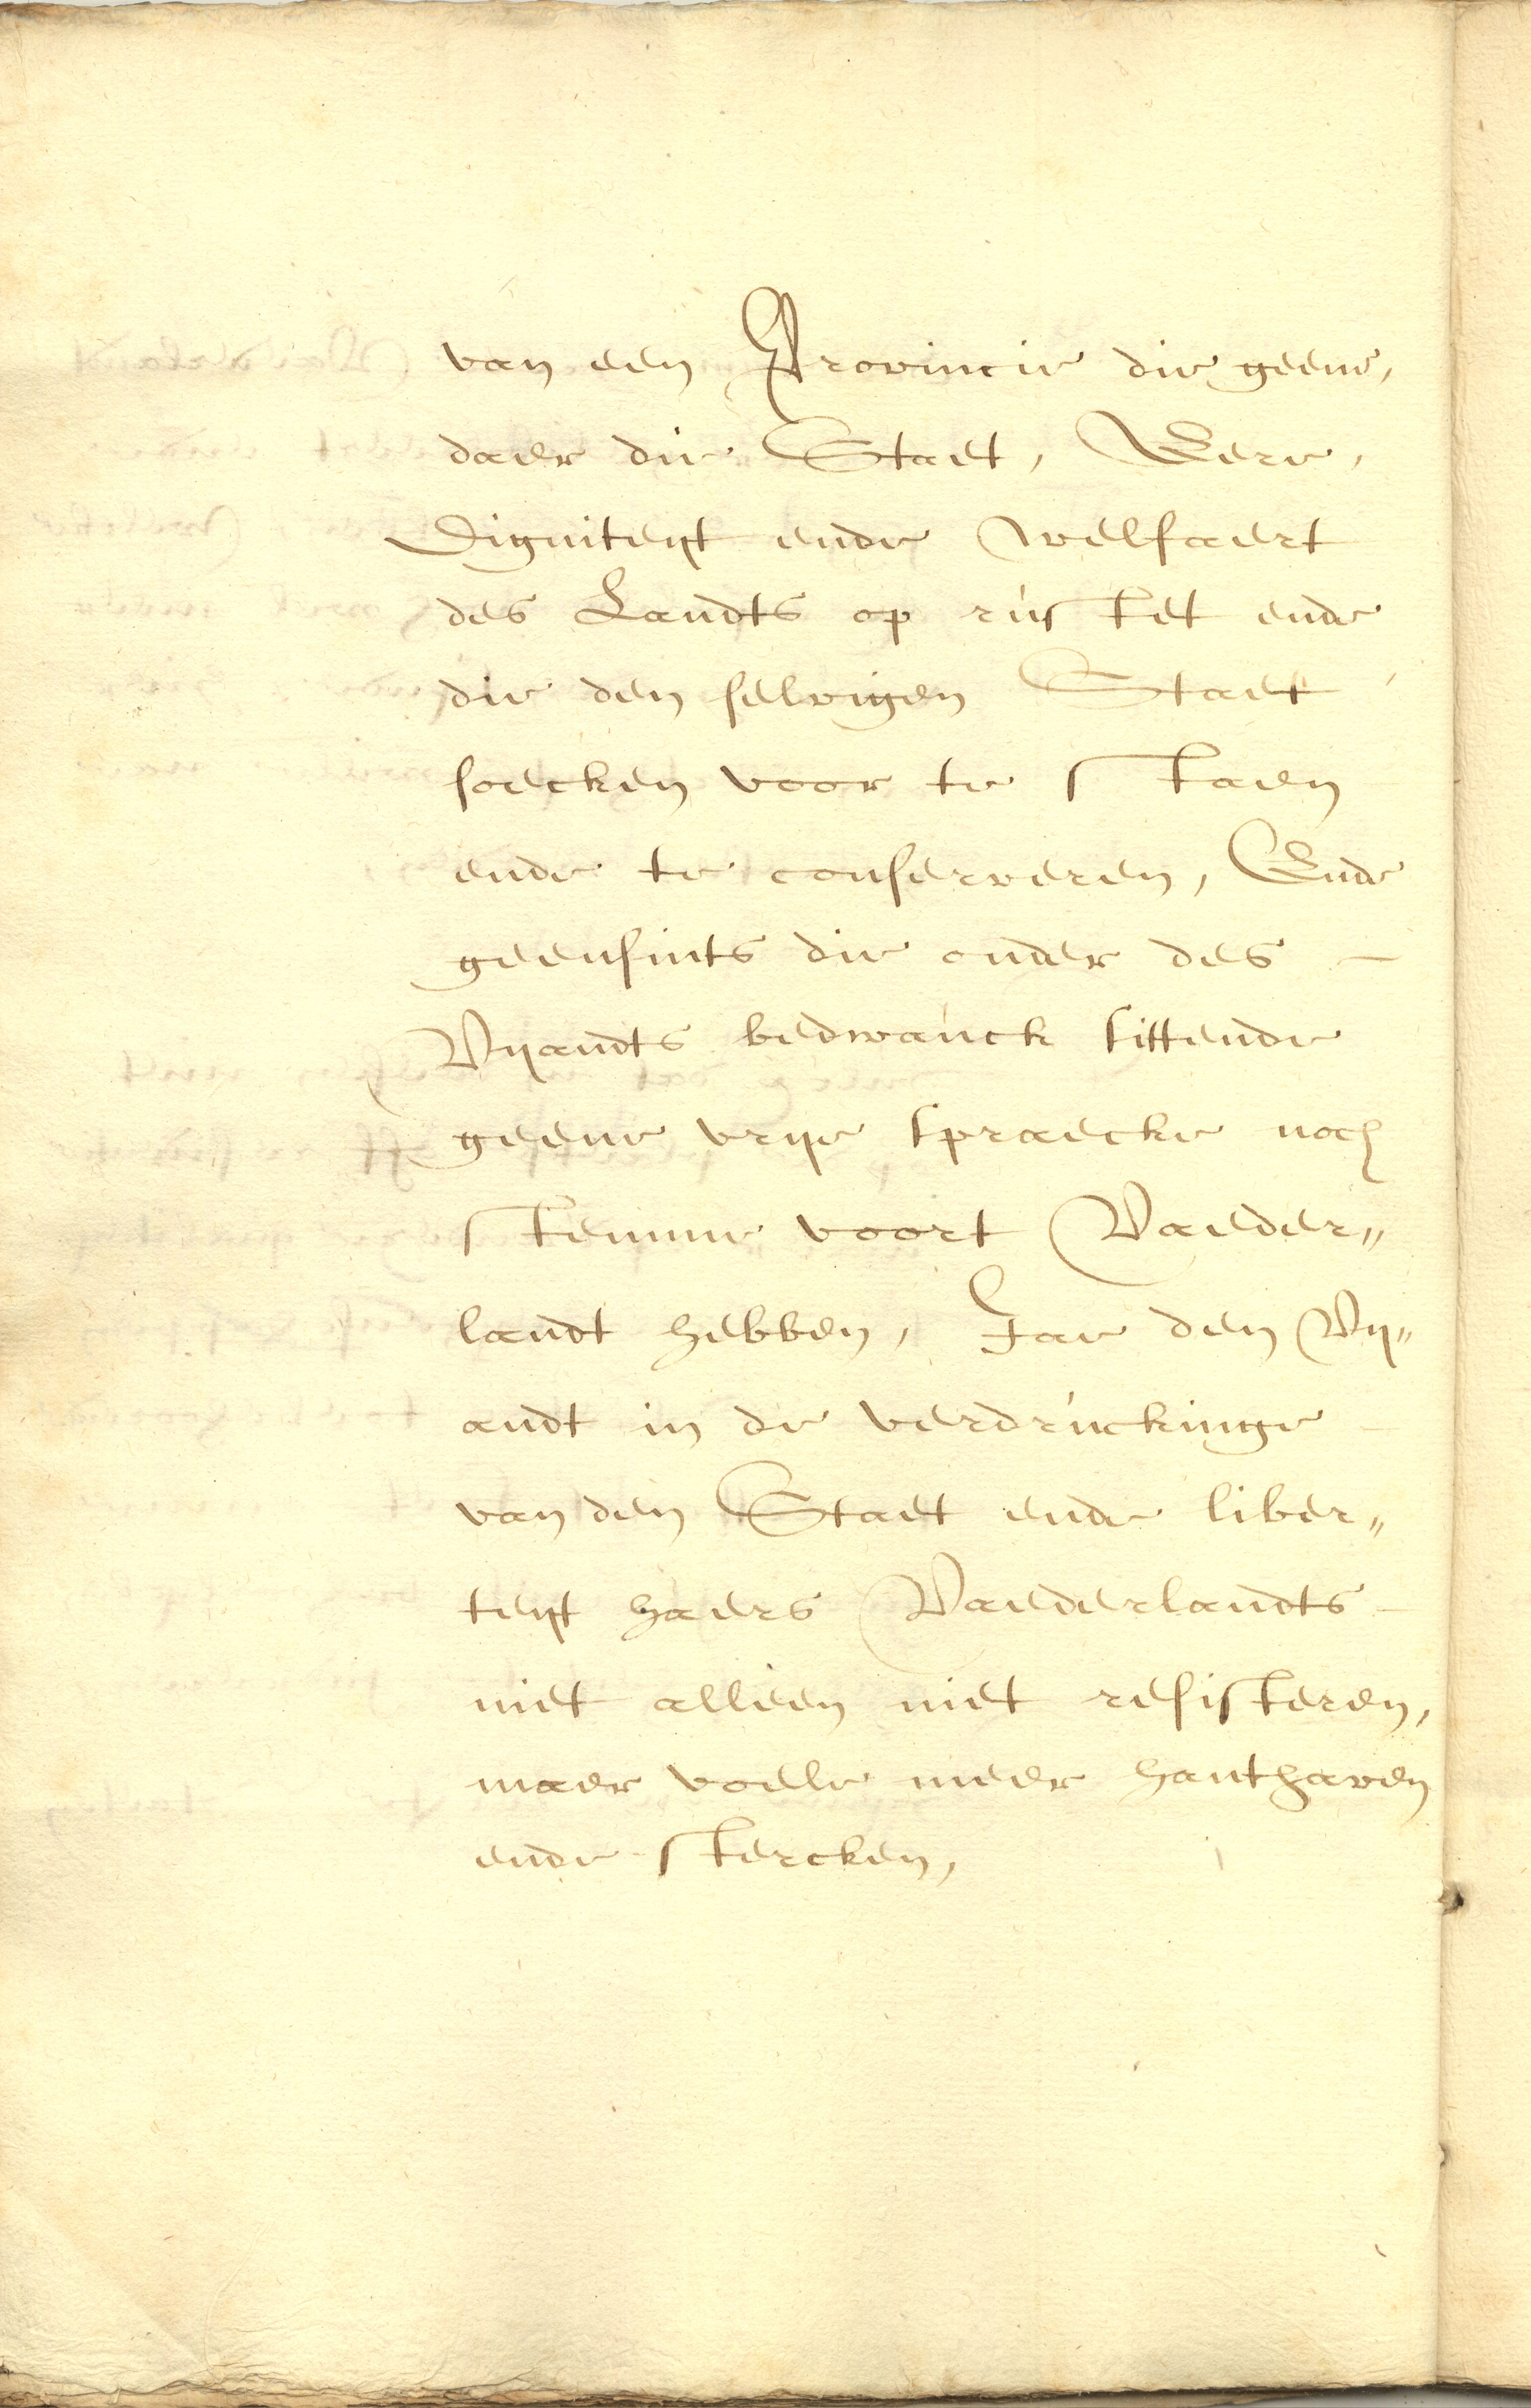 van een Provincie die geene,
daer die Staet, Eere,
Digniteyt ende welfaert
des Landts op rústet ende
die den selvigen Staet
soecken voor te staen
ende te conserveren, Ende
geensints die onder des
Vyandts bedwanck sittende
geene vrye spraecke noch
stemme voort Vaeder„
landt hebben, Jae den Vy„
andt in de verdrúckinge
van den Staet ende liber„
teyt haers Vaederlandts
niet alleen niet resisteren,
maer voele meer hanthaven
ende stercken,